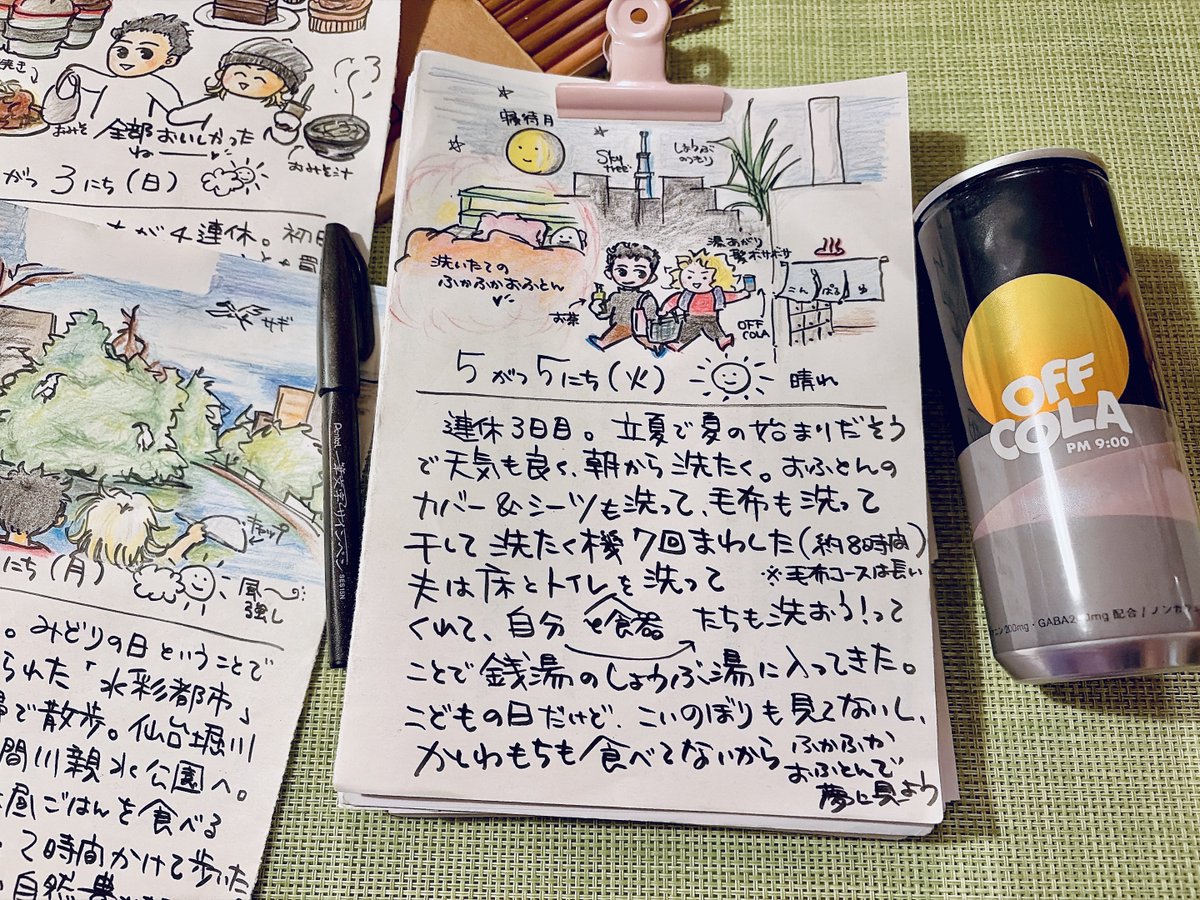 全部おいしかった
ねー
おみそ
おみそ汁
がつ 3にち(日)
が4連休。初日
サギ
チュップ
にち(月)
風
強し
。みどりの日ということで
られた「水彩都市」
で散歩。仙台堀川
間川親水公園へ。
昼ごはんを食べる
2時間かけて歩いた
自然豊か
寝待月
Sky
tree
しょうぶ
のつもり
洗いたての
ふかふかおふとん
お茶
湯あがり
髪ボサボサ
OFF
COLA
こんぱるゆ
5がつ5にち(火)
晴れ
連休3日目。立夏で夏の始まりだそう
で天気も良く、朝から洗たく。おふとんの
カバー&シーツも洗って、毛布も洗って
干して洗たく機7回まわした(約8時間)
※毛布コースは長い
夫は床とトイレを洗って
くれて、自分と食器たちも洗おう!って
ことで銭湯のしょうぶ湯に入ってきた。
こどもの日だけど、こいのぼりも見てないし、
かしわもちも食べてないから ふかふか
おふとんで
夢に見よう
Pentel 筆文字サインペン
SES15N
OFF
COLA
PM 9:00
ニン200mg・GABA200mg 配合 / ノンカ